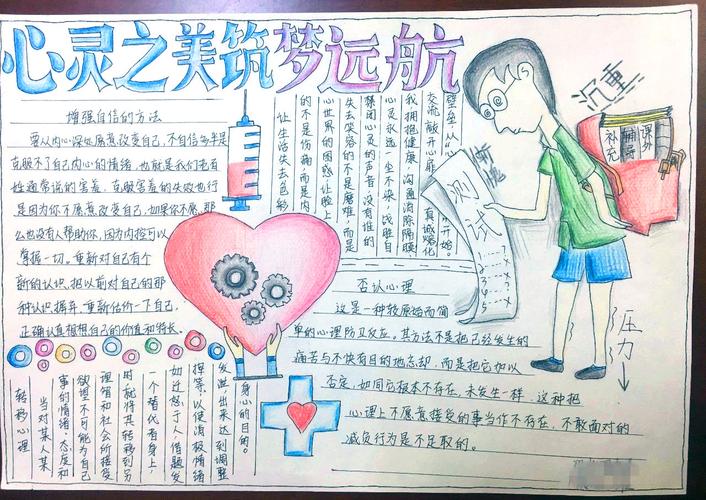 心灵之美筑梦远航
增强自信的方法
要从内心深处愿意改变自己，不自信多半是
克服不了自己内心的情绪，也就是我们老百
姓通常说的害羞，克服害羞的失败也行
是因为你不愿意改变自己，如果你不愿，那
么也没有人帮助你，因为内控可以
掌握一切。重新对自己有个
新的认识，把以前对自己的那
种认识，摒弃，重新估价一下自己，
正确认真想想自己的价值和特长。
壁垒，从心
开始。
交流，敞开心扉
真诚融化
我拥抱健康，沟通消除隔膜
心灵永远一尘不染，战胜自
禁闭心灵的声音，没有谁的
失去笑容的不是磨难，而是
心世界的困惑，让脸上
的不是伤痛，而是内
让生活失去色彩
惭愧
测试
1
2
3
4
5
沉重
补充
辅导
课外
压力
否认心理
这是一种较原始而简
单的心理防卫反应。其方法不是把已经发生的
痛苦与不快有目的地忘却，而是把它加以
否定，如同它根本不存在，未发生一样，这种把
心理上不愿意接受的事当作不存在，不敢面对的
减负行为是不足取的。
转移心理
当对某人某
事的情绪、态度和
欲望不可能为自己
理智和社会所接受
时，就将其转移到另
一个替代者身上，
如迁怒于人，借题发
挥等，以使消极情绪
发泄出来达到调整
身心的目的。